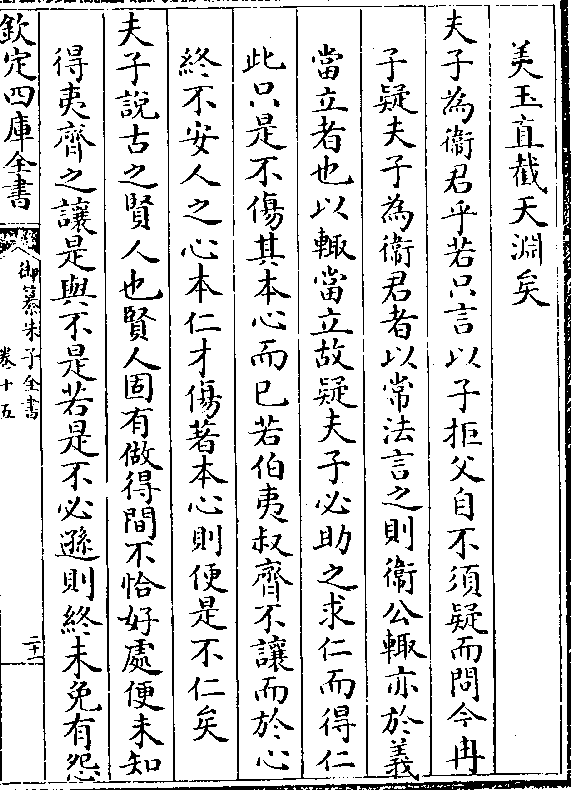 美玉直截天淵矣
夫子為衞君乎若只言以子拒父自不須疑而問今冉
子疑夫子為衞君者以常法言之則衞公輙亦於義
當立者也以輙當立故疑夫子必助之求仁而得仁
此只是不傷其本心而已若伯夷叔齊不讓而於心
終不安人之心本仁才傷著本心則便是不仁矣
夫子說古之賢人也賢人固有做得間不恰好處便未知
得夷齊之讓是與不是若是不必遜則終未免有怨
欽定四庫全書
御纂朱子全書
卷十五
二十一